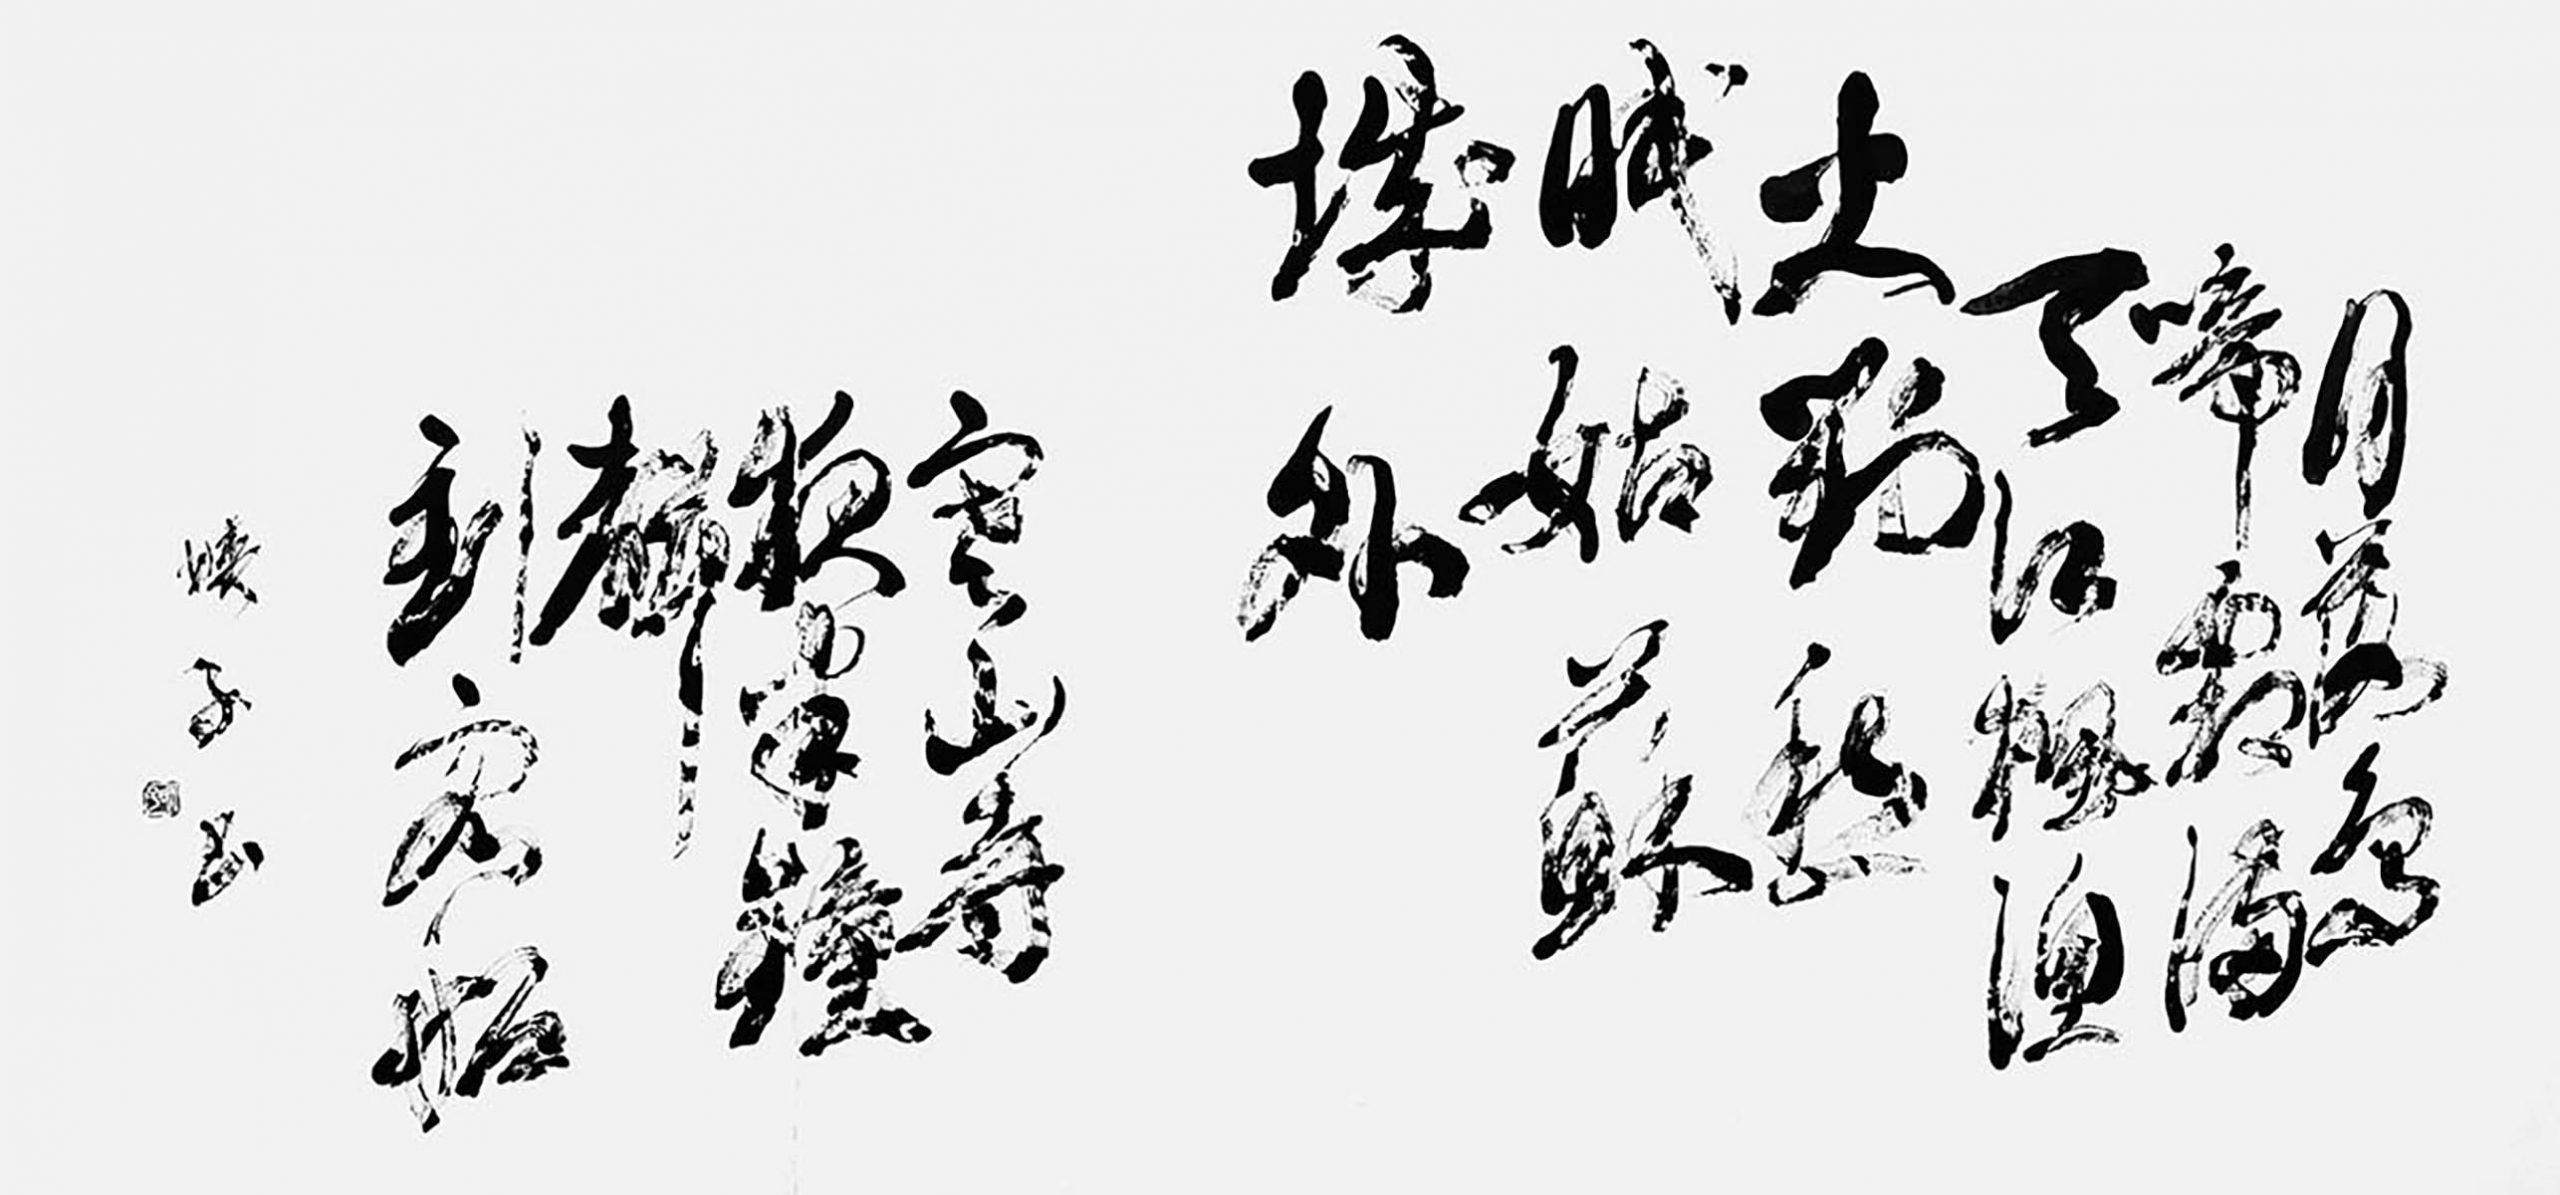 月落烏
啼霜滿
天江楓漁
火對愁
眠姑蘇
城外
寒山寺
夜半鐘
聲
到客船
子书